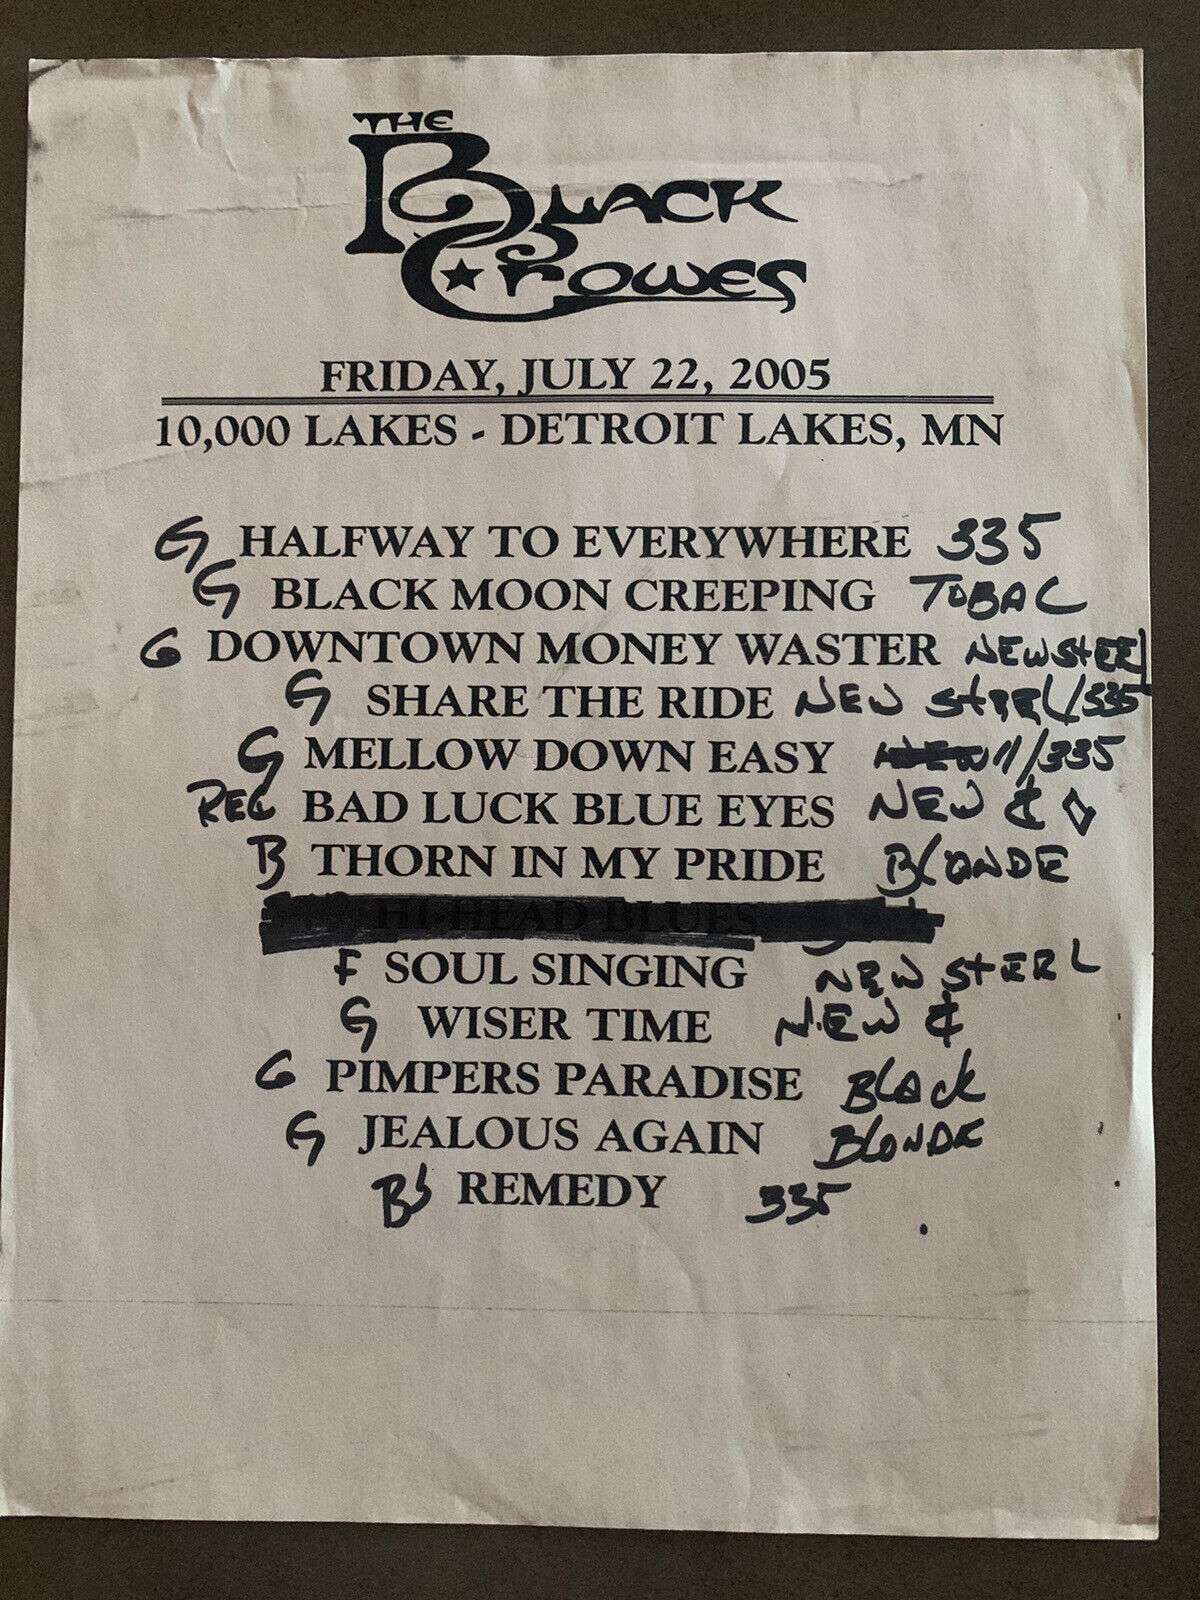 THE
BLACK
CROWES
FRIDAY, JULY 22, 2005
10,000 LAKES - DETROIT LAKES, MN
G HALFWAY TO EVERYWHERE 335
G BLACK MOON CREEPING TOBAC
G DOWNTOWN MONEY WASTER NEW STEEL
G SHARE THE RIDE NEW STEEL/335
G MELLOW DOWN EASY NEW 11/335
REG BAD LUCK BLUE EYES NEW &
B THORN IN MY PRIDE BLONDE
HI-HEAD BLUES
F SOUL SINGING NEW STEEL
G WISER TIME NEW &
G PIMPERS PARADISE BLACK
G JEALOUS AGAIN BLONDE
REMEDY 335